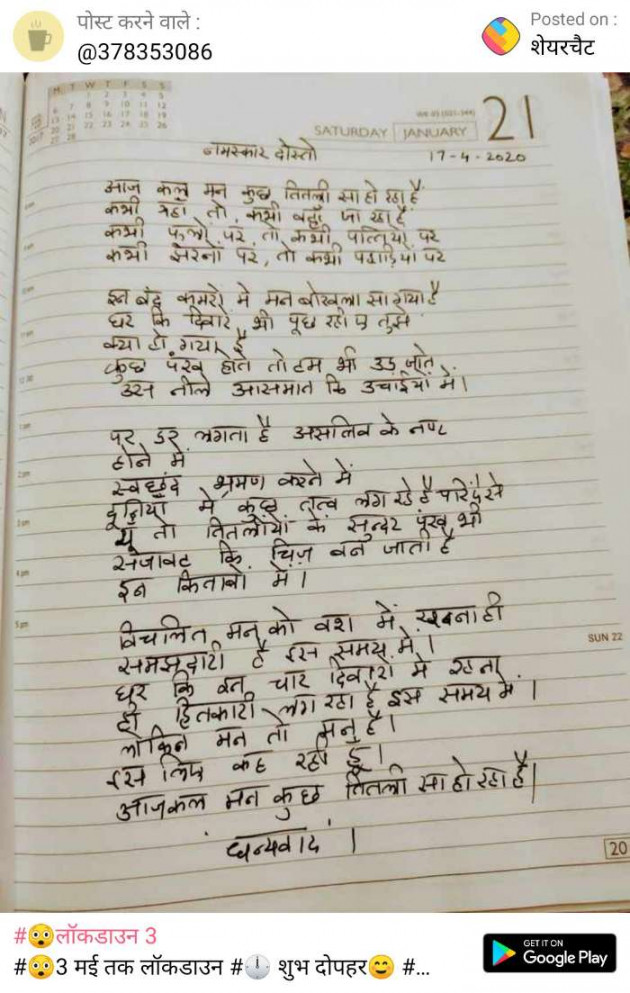 पोस्ट करने वाले :
@378353086
Posted on :
शेयरचैट
SATURDAY JANUARY 21
नमस्कार दोस्तो
17-4-2020
आज कल मन कुछ तितली सा हो रहा है
कभी यहाँ तो, कभी वहाँ जा रहा है
कभी फुलों पर, तो कभी पत्तियों पर
कभी झरनों पर, तो कभी पहाड़ियों पर
इन बंद कमरो मे मन बोखला सा गया है
घर कि दिवारें भी पूछ रही ए तुझे
क्या हो गया है
कुछ पंख होते तो हम भी उड़ जाते
उस नीले आसमान कि उचांईयों में।
पर डर लगता है असलिव के नष्ट
होने में
स्वछंद भ्रमण करने में
दूनियाँ में कुछ तत्व लग रहे है परिंदे से
यूं तो तितलीयों के सुन्दर पंख भी
सजावट कि चिज़ बन जाती है
इन किताबो में।
विचलित मन को वश में रखना ही
समझदारी है इस समय में।
घर कि बन चार दिवारो में रहना
ही हितकारी लग रहा है इस समय में।
लेकिन मन तो मनु है।
इस लिए कह रही हूँ।
आजकल मन कुछ तितली सा हो रहा है।
धन्यवाद।
SUN 22
20
#😲लॉकडाउन 3
#😲3 मई तक लॉकडाउन #🕛 शुभ दोपहर😊 #...
GET IT ON
Google Play